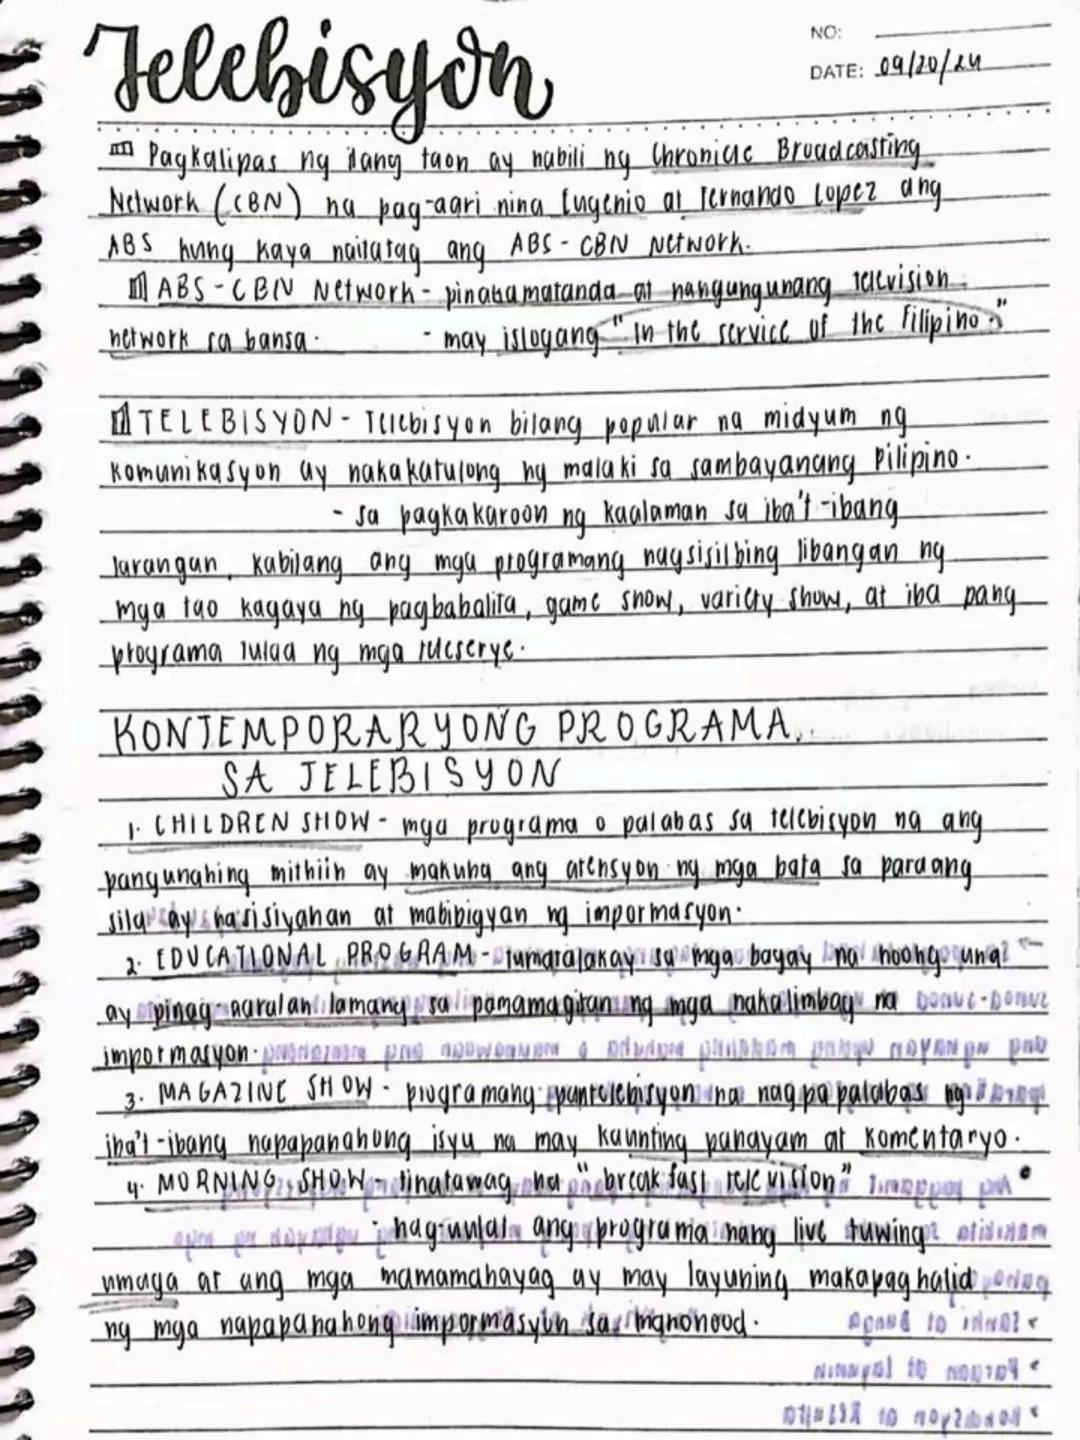 Telebisyon
NO:
DATE: 09/20/24
Pagkalipas ng ilang taon ay nabili ng Chronicle Broadcasting
Network (CBN) na pag-aari nina Eugenio at Fernando Lopez ang
ABS kung kaya nailatag ang ABS - CBN Network.
ABS - CBN Network - pinakamatanda at nangungunang television
network sa bansa.
- may islogang "In the service of the Filipino."
TELEBISYON - Telebisyon bilang popular na midyum ng
komunikasyon ay nakakatulong ng malaki sa sambayanang Pilipino.
- sa pagkakaroon ng kaalaman sa iba't-ibang
larangan, kabilang ang mga programang nagsisilbing libangan ng
mga tao kagaya ng pagbabalita, game show, variety show, at iba pang
programa tulad ng mga teleserye.
KONTEMPORARYONG PROGRAMA
SA TELEBISYON
1. CHILDREN SHOW - mga programa o palabas sa telebisyon na ang
pangunahing mithiin ay makuha ang atensyon ng mga bata sa paraang
sila ay nasisiyahan at mabibigyan ng impormasyon.
2. EDUCATIONAL PROGRAM - tumatalakay sa mga bagay na noong una
ay pinag-aaralan lamang sa pamamagitan ng mga nakalimbag na
impormasyon.
3. MAGAZINE SHOW - programang pantelebisyon na nagpapalabas ng
iba't-ibang napapanahong isyu na may kaunting panayam at komentaryo.
4. MORNING SHOW - tinatawag na "breakfast television"
- nag-uulat ang programa nang live tuwing
umaga at ang mga mamamahayag ay may layuning makapaghatid
ng mga napapanahong impormasyon sa manonood.